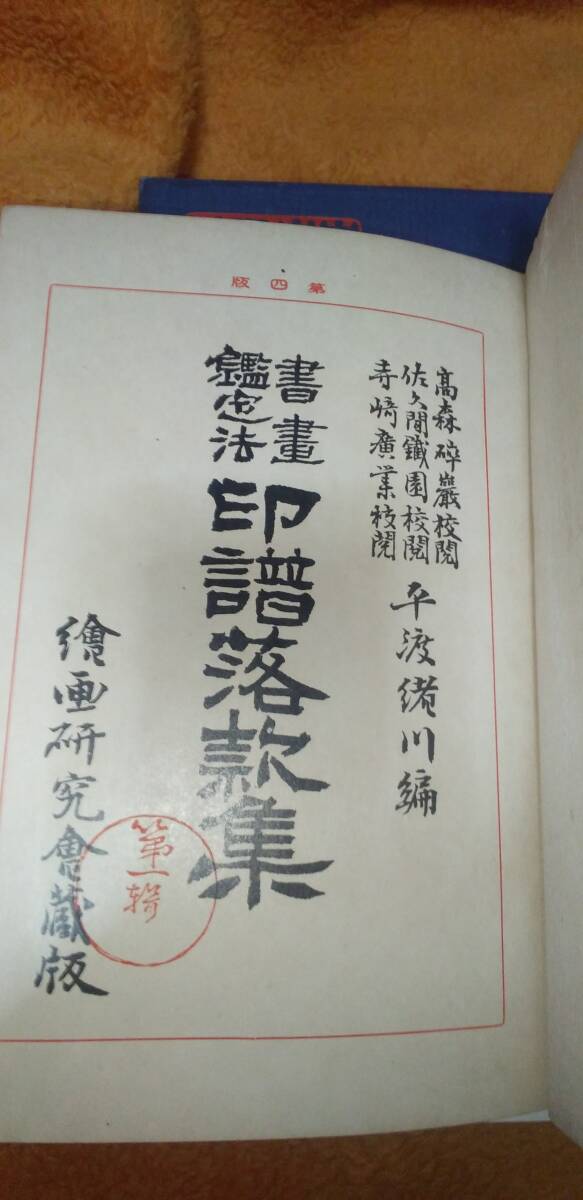 第四版
高森碎巖校閲
佐久間鐵園校閲
寺崎廣業校閲
平渡緒川編
書畫
鑑定法
印譜落款集
第一輯
繪画研究會藏版